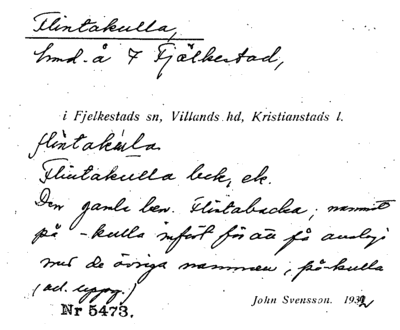 Flintakulla,
hmd. å 7 Fjälkestad,
i Fjelkestads sn, Villands hd, Kristianstads l.
flintakula
Flintakulla bck, ek.
Den gamla ben. Flintabacka; namnet
på -kulla infört för att få analogi
med de övriga namnen, på -kulla
(ad. uppg.)
John Svensson. 1932
Nr 5473.